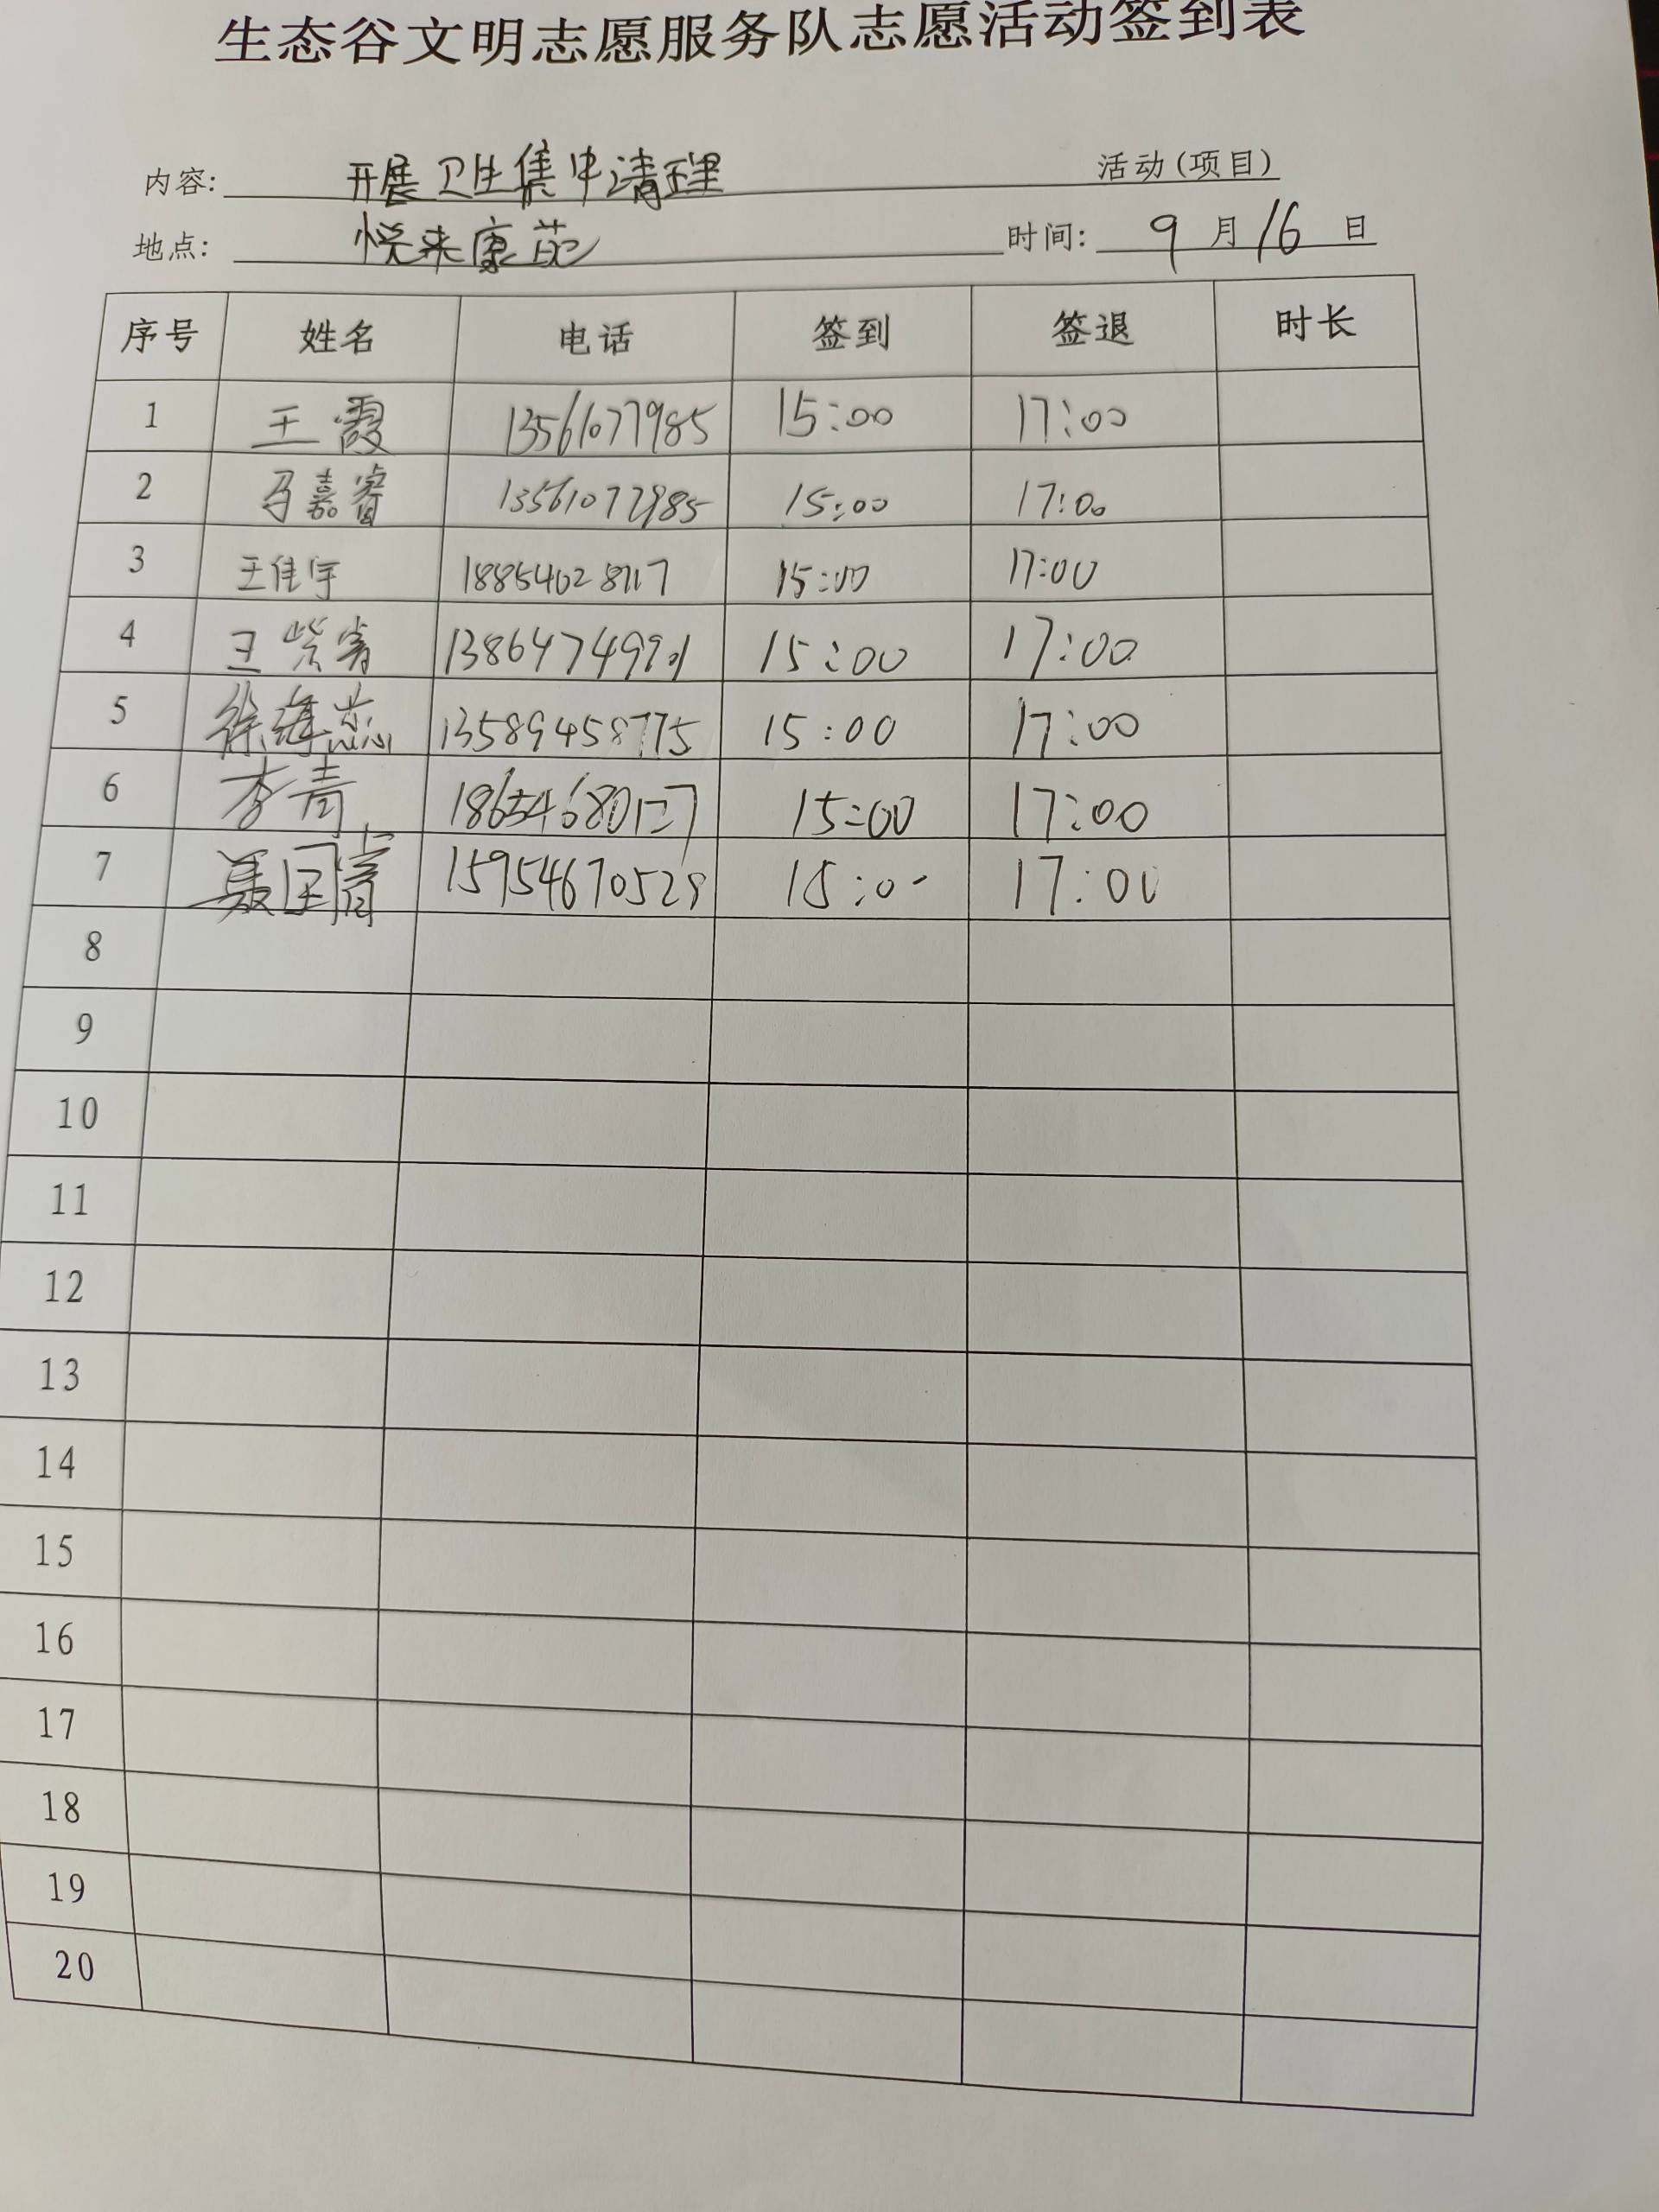 生态谷文明志愿服务队志愿活动签到表
内容: 开展卫生集中清理 活动(项目)
地点: 悦来康苑 时间: 9 月 16 日
序号 姓名 电话 签到 签退 时长
1 王霞 13561077985 15:00 17:00
2 马嘉睿 13561077985 15:00 17:00
3 王佳宇 18854628717 15:00 17:00
4 王紫 15:00 17:00
5 徐海蕊 13589458775 15:00 17:00
6 李青 18654680127 15:00 17:00
7 国 15954670529 15:00 17:00
8
9
10
11
12
13
14
15
16
17
18
19
20